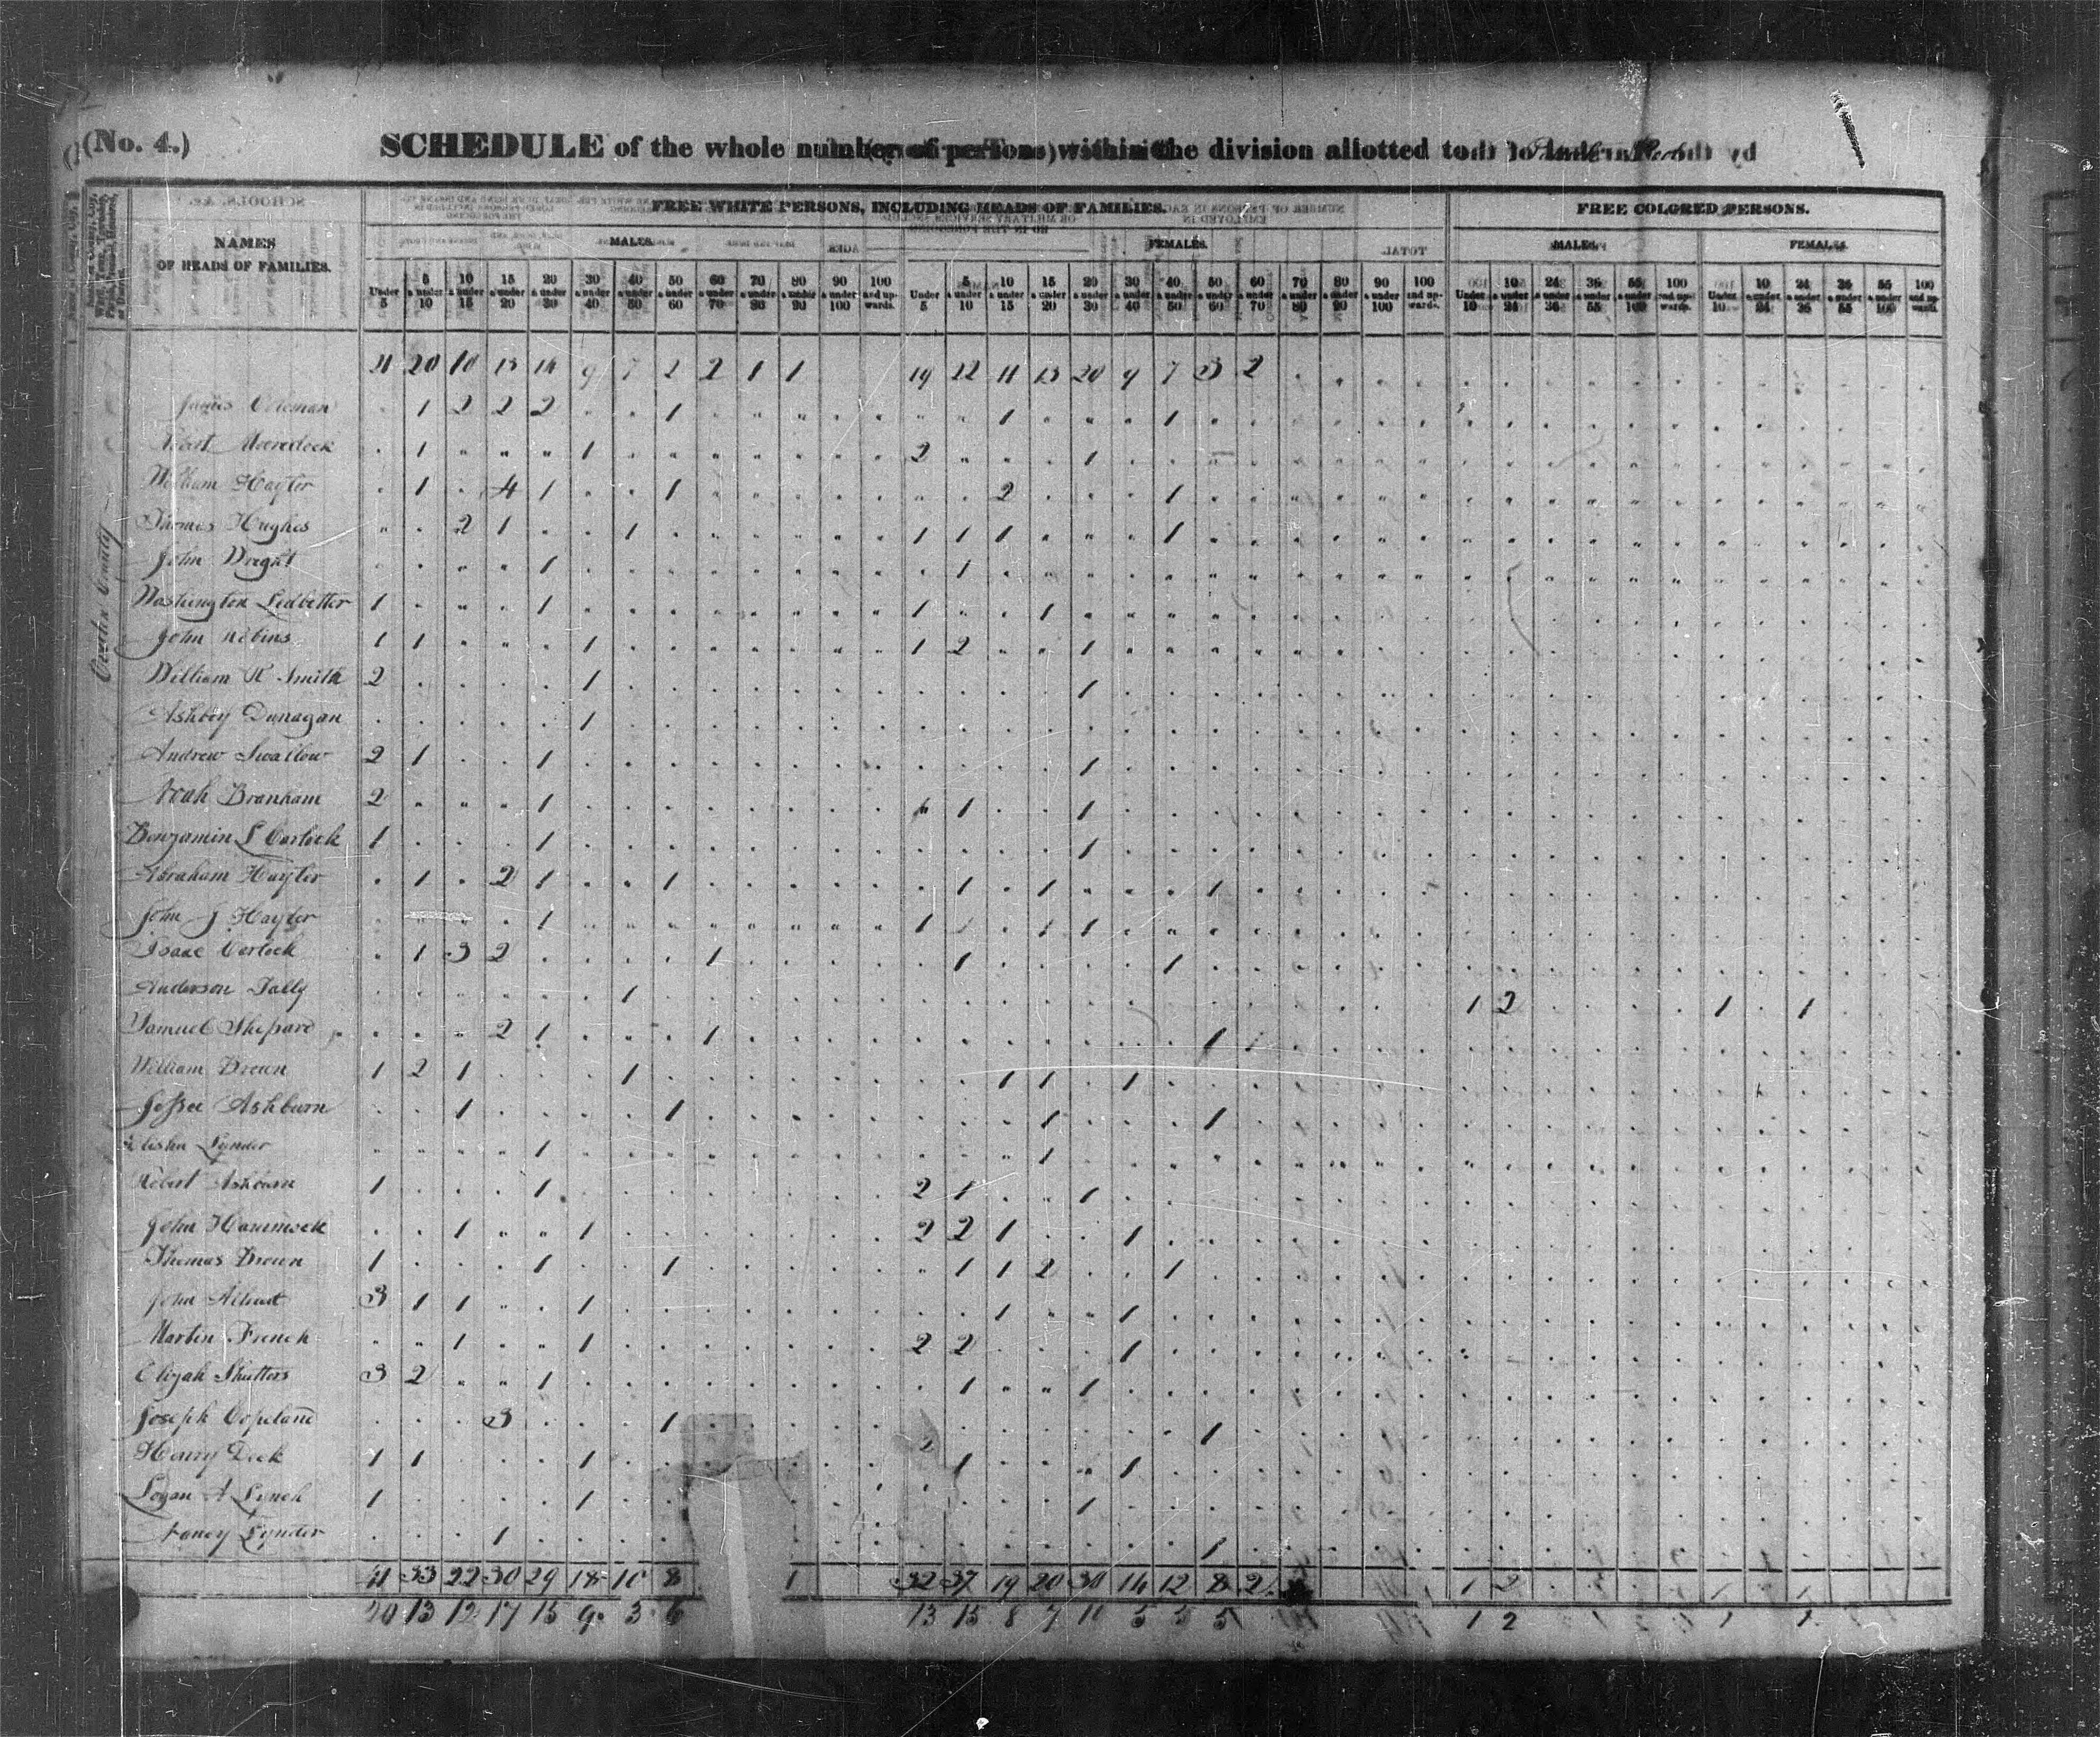 (No. 4.)
SCHEDULE of the whole number of persons within the division allotted to
NAMES OF HEADS OF FAMILIES.
FREE WHITE PERSONS, INCLUDING HEADS OF FAMILIES.
FREE COLORED PERSONS.
MALES. FEMALES. MALES. FEMALES.
Under 5 5 & under 10 10 & under 15 15 & under 20 20 & under 30 30 & under 40 40 & under 50 50 & under 60 60 & under 70 70 & under 80 80 & under 90 90 & under 100 100 and upwards. Under 5 5 & under 10 10 & under 15 15 & under 20 20 & under 30 30 & under 40 40 & under 50 50 & under 60 60 & under 70 70 & under 80 80 & under 90 90 & under 100 100 and upwards. Under 10 10 & under 24 24 & under 36 36 & under 55 55 & under 100 100 and upwards. Under 10 10 & under 24 24 & under 36 36 & under 55 55 & under 100 100 and upwards.
21 20 10 13 14 9 7 2 2 1 1 19 22 11 13 20 9 7 3 2
James Coleman 1 2 2 2 1 1 1
1 1 2 1
William Hayter 1 4 1 1 2 1
Thomas Hughes 2 1 1 1 1 1 1
John Wright 1 1
Washington Ledbetter 1 1 1 1
John Robins 1 1 1 1 2 1
William R Smith 2 1 1
Ashbey Dunagan 1
Andrew Swallow 2 1 1 1
Noah Branham 2 1 1 1
Benjamin L Carlock 1 1 1
Abraham Hayter 1 2 1 1 1 1 1
John J Hayter 1 1 1 1
Isaac Carlock 1 3 2 1 1 1
Anderson Tally 1 1 2 1 1
Samuel Shepard 2 1 1 1
William Brown 1 2 1 1 1 1 1
Jesse Ashburn 1 1 1 1
Elisha Lynder 1 1
Robert Ashburn 1 1 2 1 1
John Hammock 1 1 2 2 1 1
Thomas Brown 1 1 1 1 1 2 1
John 3 1 1 1 1 1
Martin French 1 1 2 2 1
Elizah Shutters 3 2 1 1 1
Joseph Copeland 3 1 1
Henry Deck 1 1 1 2 1 1
Logan A Lynch 1 1 1
Nancy Lynder 1 1
41 33 22 30 29 18 10 8 1 32 37 19 20 30 14 12 8 2 1 2 1 1
20 13 12 17 15 9 3 6 13 15 8 7 10 5 5 5 1 2 1 1